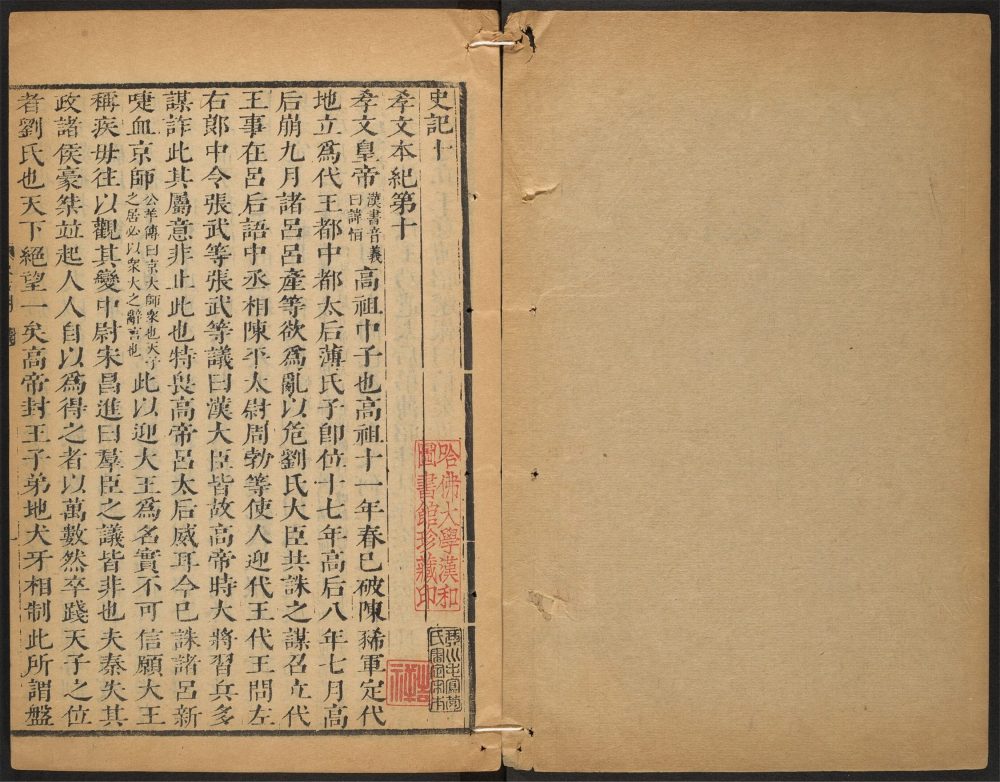 史記十
孝文本紀第十
孝文皇帝漢書音義曰諱恒高祖中子也高祖十一年春已破陳豨軍定代
地立爲代王都中都太后薄氏子卽位十七年高后八年七月高
后崩九月諸呂呂產等欲爲亂以危劉氏大臣共誅之謀召立代
王事在呂后語中丞相陳平太尉周勃等使人迎代王代王問左
右郎中令張武等張武等議曰漢大臣皆故高帝時大將習兵多
謀詐此其屬意非止此也特畏高帝呂太后威耳今已誅諸呂新
啑血京師公羊傳曰京大師衆也天子之居必以衆大之辭言也此以迎大王爲名實不可信願大王
稱疾毋往以觀其變中尉宋昌進曰羣臣之議皆非也夫秦失其
政諸侯豪桀竝起人人自以爲得之者以萬數然卒踐天子之位
者劉氏也天下絕望一矣高帝封王子弟地犬牙相制此所謂盤
哈佛大學漢和
圖書館珍藏印